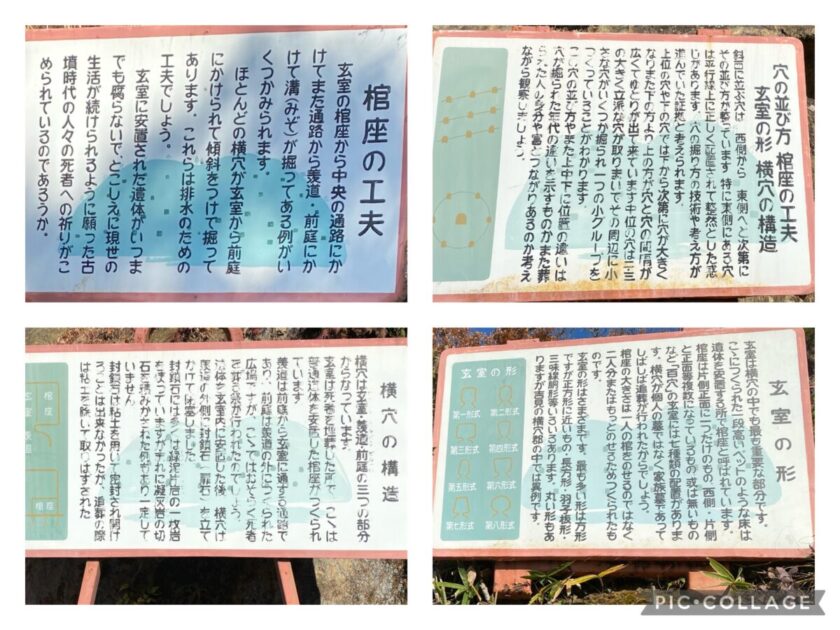 棺座の工夫
玄室の棺座から中央の通路にか
けてまた通路から羨道・前庭にか
けて溝（みぞ）が掘ってある例がい
くつかみられます。
ほとんどの横穴が玄室から前庭
にかけられて傾斜をつけて掘って
あります．これらは排水のための
工夫でしょう。
玄室に安置された遺体がいつま
でも腐らないでとこしえに現世の
生活が続けられるように願った古
墳時代の人々の死者への祈りがこ
められているのであろうか。
穴の並び方 棺座の工夫
玄室の形 横穴の構造
斜面に並ぶ穴は 西側から 東側へと次第に
その並び方が整っています 特に東側にある穴
は平行線上に正しく配置されて整然とした感
じがあります．穴の掘り方の技術や考え方が
進んでいた証拠と考えられます．
上位の穴や下の穴では下から次第に穴が大きく
なりまた下の方より上の方が穴と穴の間隔が
広くてゆとりが出て来ています中位の穴は二三
の大きく立派な穴が取りまいてその周辺に小
さな穴がいくつか掘られ一つの小グループを
つくっていることがわかります．
この穴の並び方やまた上中下に位置の違いは
穴が掘られた年代の違いを示すものかまた葬
られた人の身分や富とつながりあるのか考え
ながら観察しましょう．
横穴の構造
横穴は玄室・羨道・前庭の三つの部分
からなっています．
玄室は死者を埋葬した所で ここは
普通遺体を安置した棺座がつくられ
ています
羨道は前庭から玄室に通ずる通路で
あり、前庭は羨道の外につくられた
広場ですが、ここではおそらく死者
を
遺体を玄室内に安置した後、横穴は
羨道の外側に封鎖石（扉石）を立て
かけて閉塞しました．
封鎖石には多くは緑泥片岩の一枚岩
をつかっていますがまれに凝灰岩の切
石を積みかさねた例もあり一定して
いません
封鎖石は粘土を用いて密封され開け
ることは出来なかったが、追葬の際
は粘土を除いて取りはずされた
棺座
棺座
玄室の形
玄室は横穴の中でも最も重要な部分です．
ここにつくられた一段高いベットのような床は
遺体を安置する所で棺座と呼ばれています．
棺座は片側正面に一つだけのもの、西側、片側
と正面等複数になっているもの或は無いもの
など「百穴」の玄室には七種類の配置がありま
す．横穴が個人の墓ではなく家族墓であって
しばしば追葬が行われたからでしょう．
棺座の大きさは一人の棺をのせるのではなく
二人分またはもっとのせるためつくられたも
のです．
玄室の形はさまざまです．最も多い形は方形
ですが正方形に近いもの・長方形・羽子板形・
三味線胴形等いろいろあります．丸い形もあ
りますが吉見の横穴郡の中では異例です．
玄室の形
第一形式
第二形式
第三形式
第四形式
第五形式
第六形式
第七形式
第八形式
PIC•COLLAGE